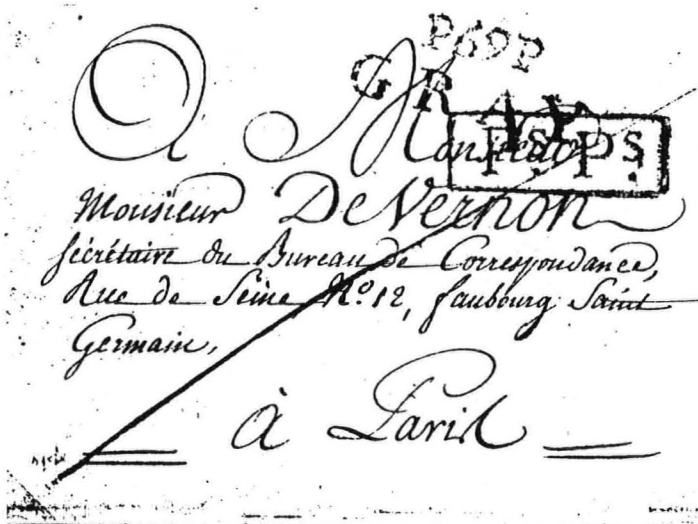 P69P
GRAY
Ps.Ps.
A Monsieur
Monsieur De Vernon
sécrétaire du Bureau de Correspondance,
Rue de Seine N.º 12, faubourg Saint
Germain,
à Paris